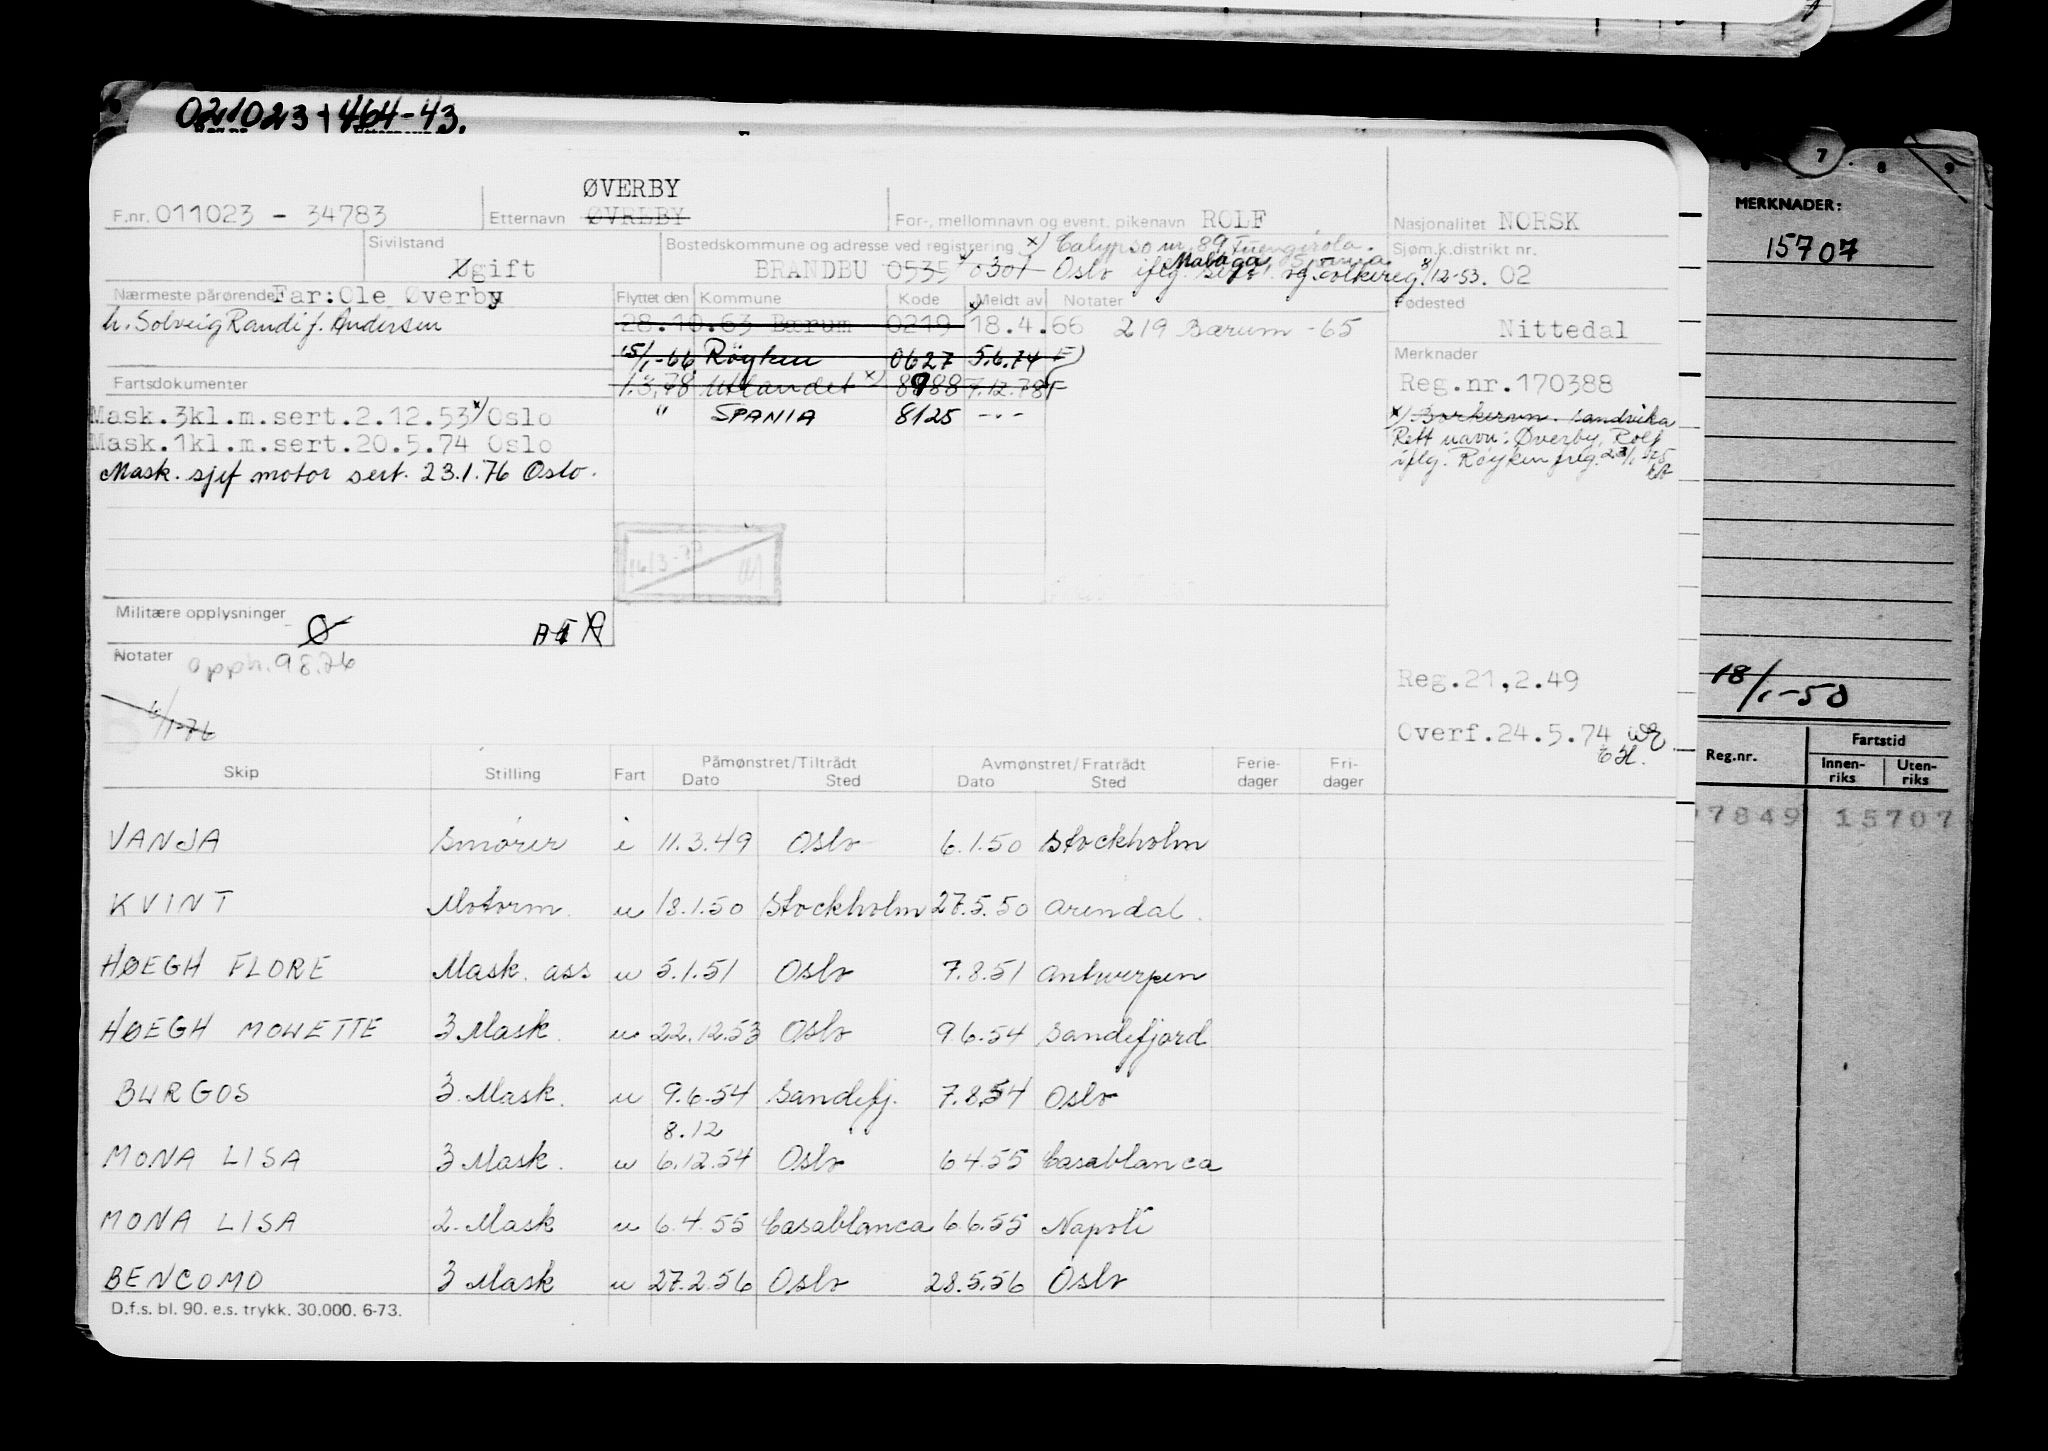 021023 464-43.
ØVERBY
F.nr. 011023 - 34783 Etternavn ØVREBY For-, mellomnavn og event. pikenavn ROLF Nasjonalitet NORSK
Sivilstand Ugift
Bostedskommune og adresse ved registrering x) Calypso nr. 89 Fuengirola.
Malaga, Spania
BRANDBU 0535 0301 Oslo iflg. og folkereg. 8/12-53.
Sjøm.k.distrikt nr. 02
Nærmeste pårørende Far: Ole Øverby
h. Solveig Randi f. Andersen
Flyttet den Kommune Kode Meldt av Notater
28.10.63 Bærum 0219 18.4.66 219 Bærum -65
15/1-66 Røyken 0627 5.6.74 F)
1.3.78 Utlandet x) 8988 7.12.78 F
" SPANIA 8125 - - -
Fødested Nittedal
Merknader
Reg.nr.170388
x) sandvika
Rett navn: Øverby, Rolf
iflg. Røyken freg.
Fartsdokumenter
Mask.3kl.m.sert.2.12.53 x) Oslo
Mask.1kl.m.sert.20.5.74 Oslo
Mask. sjef motor sert. 23.1.76 Oslo.
Militære opplysninger Ø
Notater opph. 9.8.76
6/1-76
Reg.21,2.49
Overf.24.5.74
Skip Stilling Fart Påmønstret/Tiltrådt Dato Sted Avmønstret/Fratrådt Dato Sted Ferie-dager Fri-dager
VANJA Smører i 11.3.49 Oslo 6.1.50 Stockholm
KVINT Motorm. u 18.1.50 Stockholm 27.5.50 Arendal.
HØEGH FLORE Mask. ass u 5.1.51 Oslo 7.8.51 Antwerpen
HØEGH MOWETTE 3 Mask. u 22.12.53 Oslo 9.6.54 Sandefjord
BURGOS 3. Mask. u 9.6.54 Sandefj. 7.8.54 Oslo
8.12
MONA LISA 3 Mask. u 6.12.54 Oslo 6.4.55 Casablanca
MONA LISA 2. Mask u 6.4.55 Casablanca 6.6.55 Napoli
BENCOMO 3 Mask u 27.2.56 Oslo 28.5.56 Oslo
D.f.s. bl. 90. e.s. trykk. 30.000. 6-73.
7 8 9
MERKNADER:
15707
18/1-50
Reg.nr. Fartstid
Innen-riks Uten-riks
7849 15707